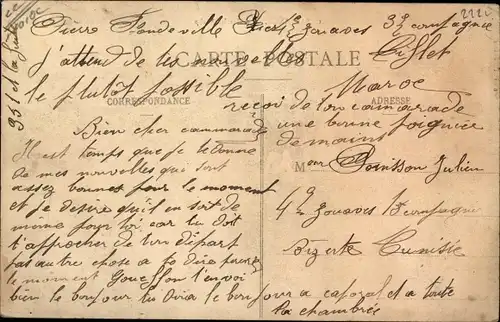 Pierre Fondeville 1er Zouaves 3e compagnie
CARTE POSTALE
Tiflet
Maroc
j'attend de tes nouvelles
le plutôt possible
CORRESPONDANCE
ADRESSE
recoi de ton camarade
une bonne poignée
de mains
Bien cher cammarade
Il est temps que je te donne
de mes nouvelles qui sont
assez bonnes pour le moment
et je desire qu'il en soit de
même pour toi car tu doit
t'approcher de ton départ
pas autre chose a te dire pour
le moment t'envoi
bien le bonjour tu dira le bonjour a caporal et a toute
la chambrée
M Julien
4e Zouaves compagnie
Bizerte Tunisie